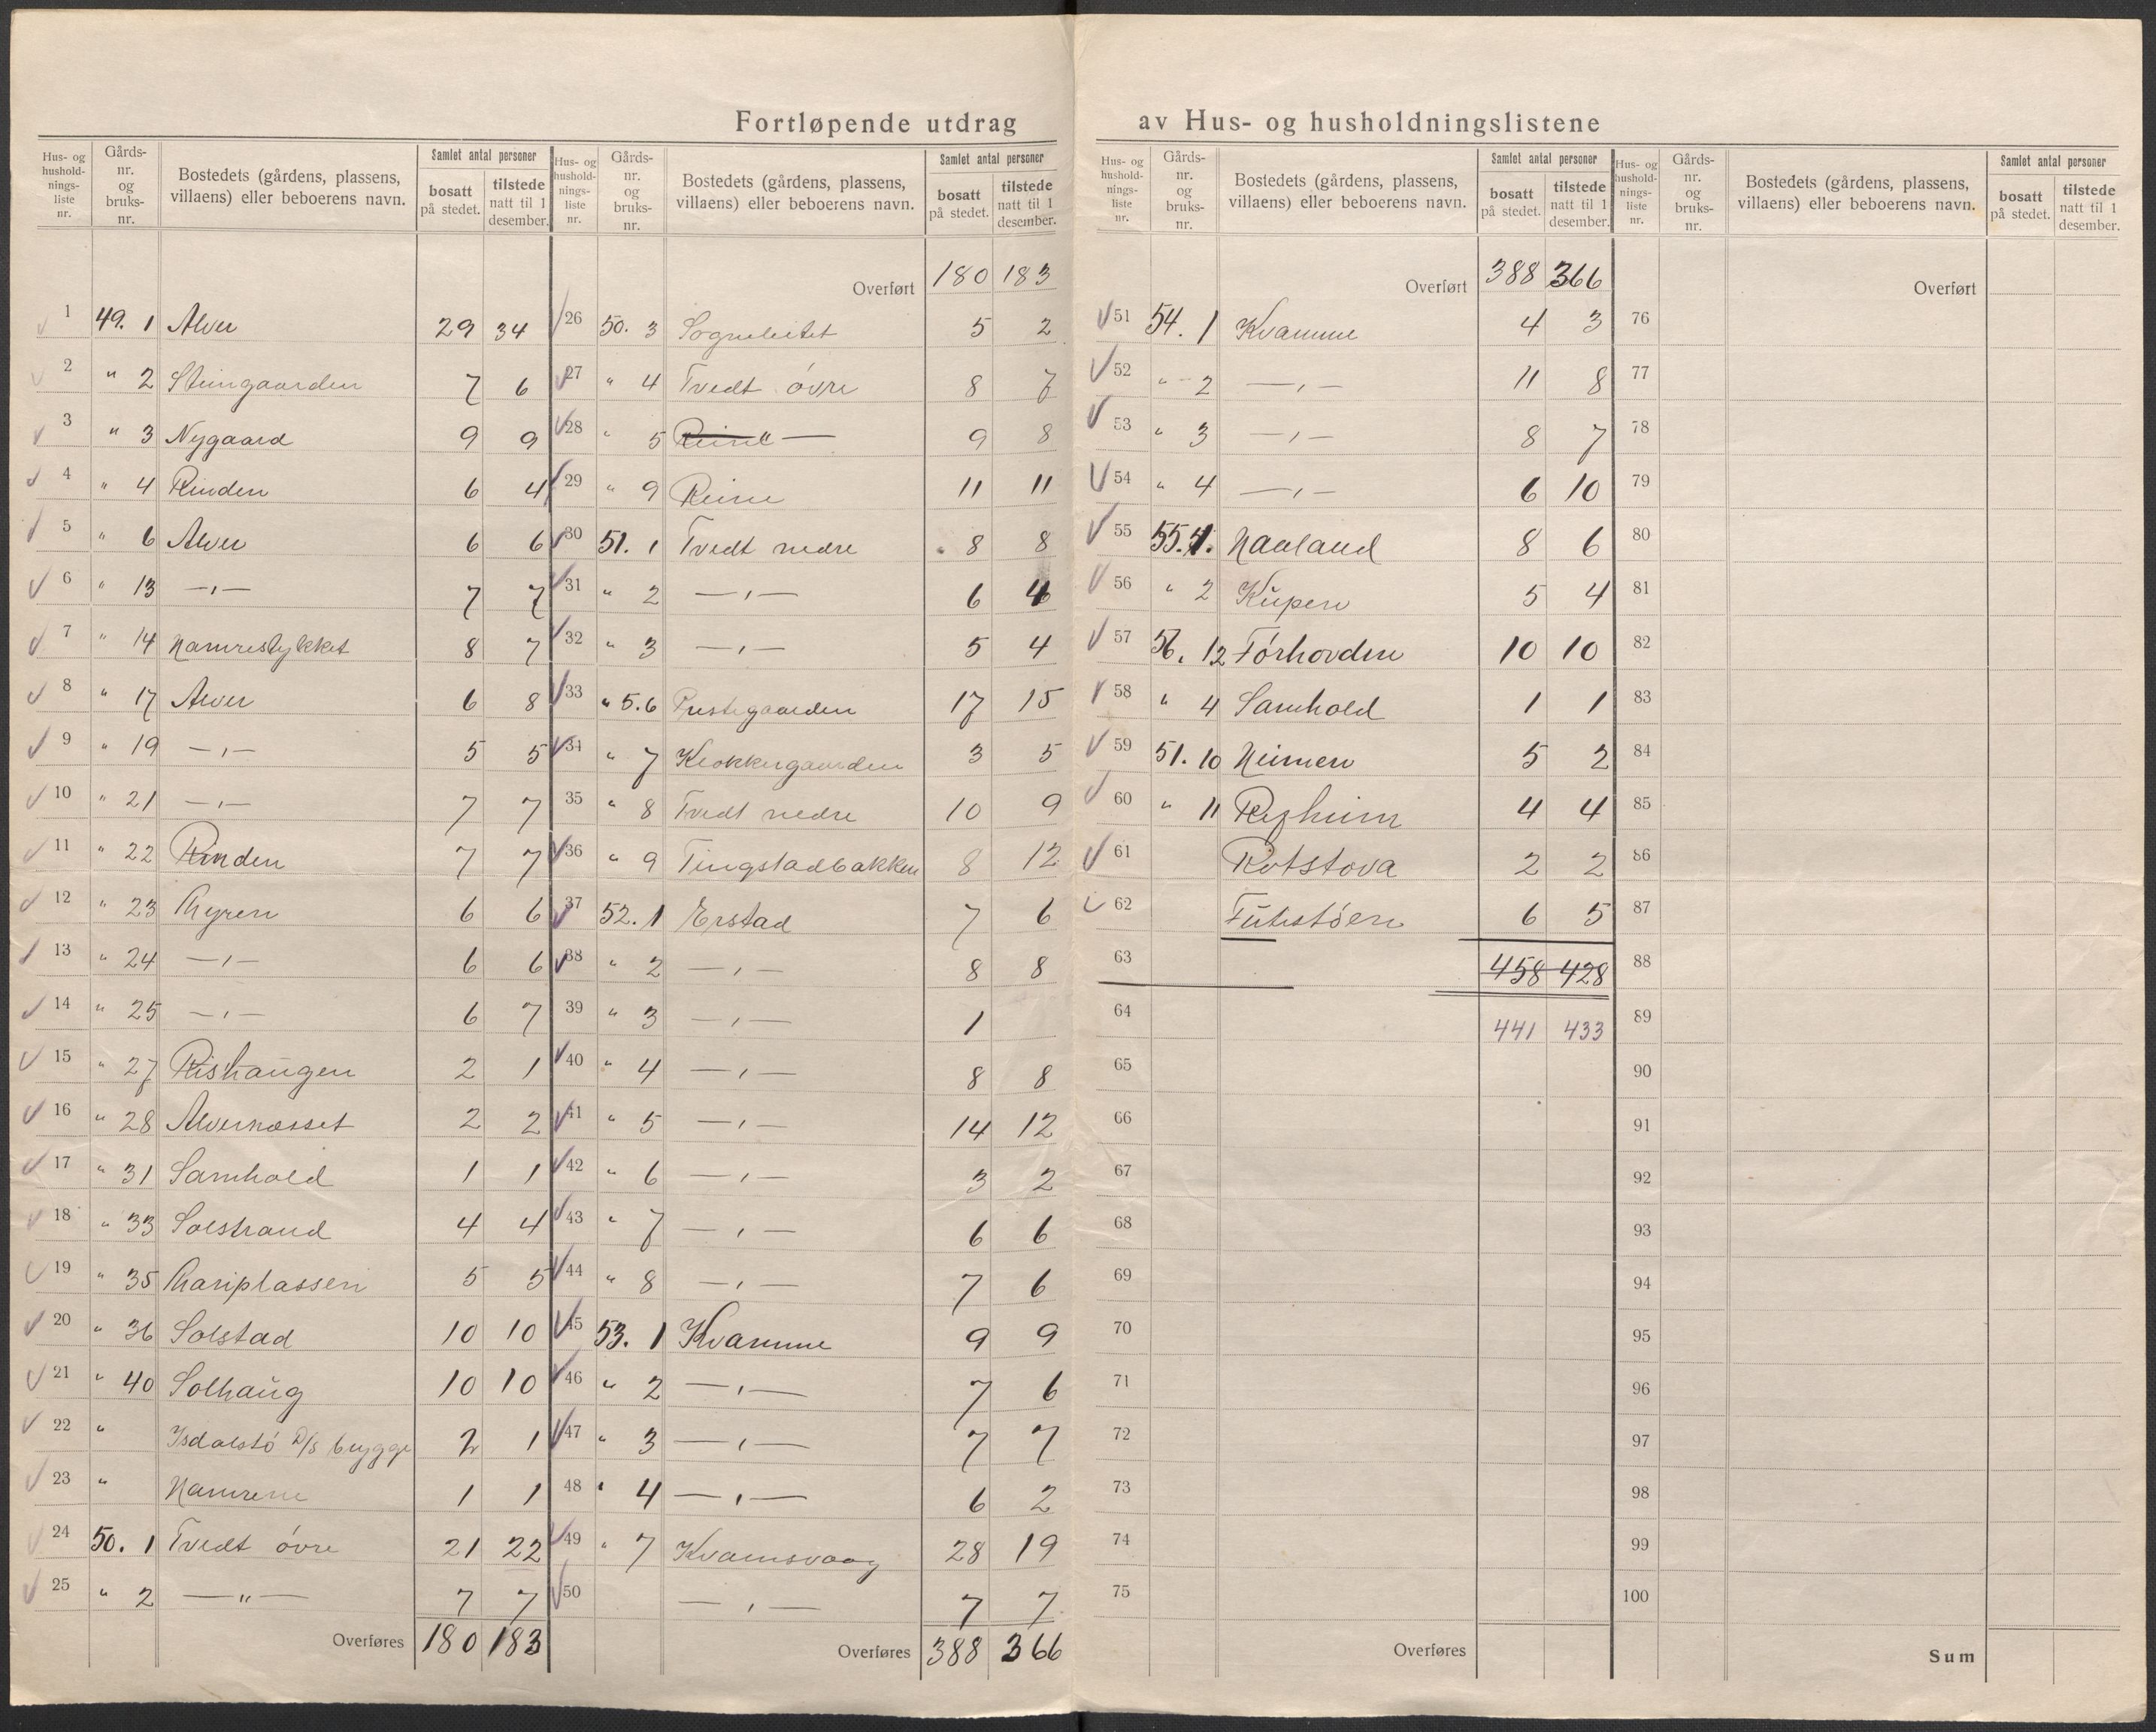 Fortløpende utdrag av Hus- og husholdningslistene
Hus- og hushold- nings- liste nr. Gårds- nr. og bruks- nr. Bostedets (gårdens, plassens, villaens) eller beboerens navn. Samlet antal personer bosatt på stedet. tilstede natt til 1 desember.
1 49. 1 Alver 29 34
2 " 2 Steingaarden 7 6
3 " 3 Nygaard 9 9
4 " 4 Rinden 6 4
5 " 6 Alver 6 6
6 " 13 —"— 7 7
7 " 14 Hamrestykket 8 7
8 " 17 Alver 6 8
9 " 19 —"— 5 5
10 " 21 —"— 7 7
11 " 22 Rinden 7 7
12 " 23 Myren 6 6
13 " 24 —"— 6 6
14 " 25 —"— 6 7
15 " 27 Rishaugen 2 1
16 " 28 Alvernæsset 2 2
17 " 31 Samhold 1 1
18 " 33 Solstrand 4 4
19 " 35 Mariplassen 5 5
20 " 36 Solstad 10 10
21 " 40 Solhaug 10 10
22 " Isdalstø D/S brygge 2 1
23 " Hamrene 1 1
24 50. 1 Tvedt øvre 21 22
25 " 2 —"— 7 7
Overføres 180 183
Hus- og hushold- nings- liste nr. Gårds- nr. og bruks- nr. Bostedets (gårdens, plassens, villaens) eller beboerens navn. Samlet antal personer bosatt på stedet. tilstede natt til 1 desember.
Overført 180 183
26 50. 3 Sogneleitet 5 2
27 " 4 Tvedt øvre 8 7
28 " 5 —"— 9 8
29 " 9 Reine 11 11
30 51. 1 Tvedt nedre 8 8
31 " 2 —"— 6
32 " 3 —"— 5 4
33 " 5.6 Prestegaarden 17 15
34 " 7 Klokkergaarden 3 5
35 " 8 Tvedt nedre 10 9
36 " 9 Tingstadbakken 8 12
37 52. 1 Erstad 7 6
38 " 2 —"— 8 8
39 " 3 —"— 1
40 " 4 —"— 8 8
41 " 5 —"— 14 12
42 " 6 —"— 3 2
43 " 7 —"— 6 6
44 " 8 —"— 7 6
45 53. 1 Kvamme 9 9
46 " 2 —"— 7 6
47 " 3 —"— 7 7
48 " 4 —"— 6 2
49 " 7 Kvamsvaag 28 19
50 —"— 7 7
Overføres 388 366
Hus- og hushold- nings- liste nr. Gårds- nr. og bruks- nr. Bostedets (gårdens, plassens, villaens) eller beboerens navn. Samlet antal personer bosatt på stedet. tilstede natt til 1 desember.
Overført 388 366
51 54. 1 Kvamme 4 3
52 " 2 —"— 11 8
53 " 3 —"— 8 7
54 " 4 —"— 6 10
55 55. 1. Haaland 8 6
56 " 2 Kupen 5 4
57 56. 12 Førhovden 10 10
58 " 4 Samhold 1 1
59 51. 10 Heimen 5 2
60 " 11 4 4
61 Rotstova 2 2
62 6 5
63 458 428
64 441 433
65
66
67
68
69
70
71
72
73
74
75
Overføres
Hus- og hushold- nings- liste nr. Gårds- nr. og bruks- nr. Bostedets (gårdens, plassens, villaens) eller beboerens navn. Samlet antal personer bosatt på stedet. tilstede natt til 1 desember.
Overført
76
77
78
79
80
81
82
83
84
85
86
87
88
89
90
91
92
93
94
95
96
97
98
99
100
Sum